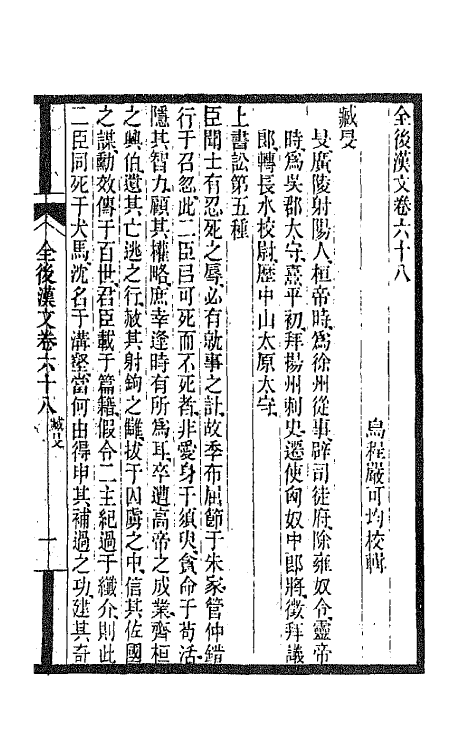 全後漢文卷六十八
烏程嚴可均校輯
臧旻
旻廣陵射陽人桓帝時爲徐州從事辟司徒府除雍奴令靈帝
時爲吳郡太守熹平初拜揚州刺史遷使匈奴中郎將徵拜議
郎轉長水校尉歷中山太原太守
上書訟第五種
臣聞士有忍死之辱必有就事之計故季布屈節于朱家管仲錯
行于召忽此二臣㠯可死而不死者非愛身于須臾貪命于苟活
隱其智力顧其權略庶幸逢時有所爲耳卒遭高帝之成業齊桓
之興伯遺其亡逃之行赦其射鉤之讎拔于囚虜之中信其佐國
之謀勳效傳于百世君臣載于篇籍假令二主紀過于纖介則此
二臣同死于犬馬沈名于溝壑當何由得申其補過之功建其奇
全後漢文卷六十八 臧旻 一